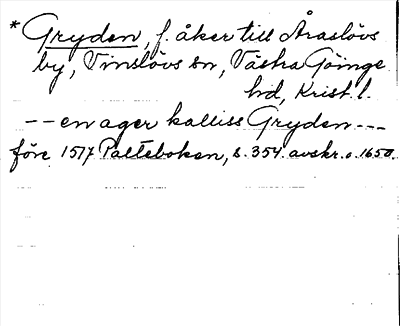 * Gryden, f. åker till Åraslövs
by, Vinslövs sn, Västra Göinge
hd, Krist. l.
-- en ager kalliss Gryden ---
före 1517 Palteboken, s. 354. avskr. o. 1650.